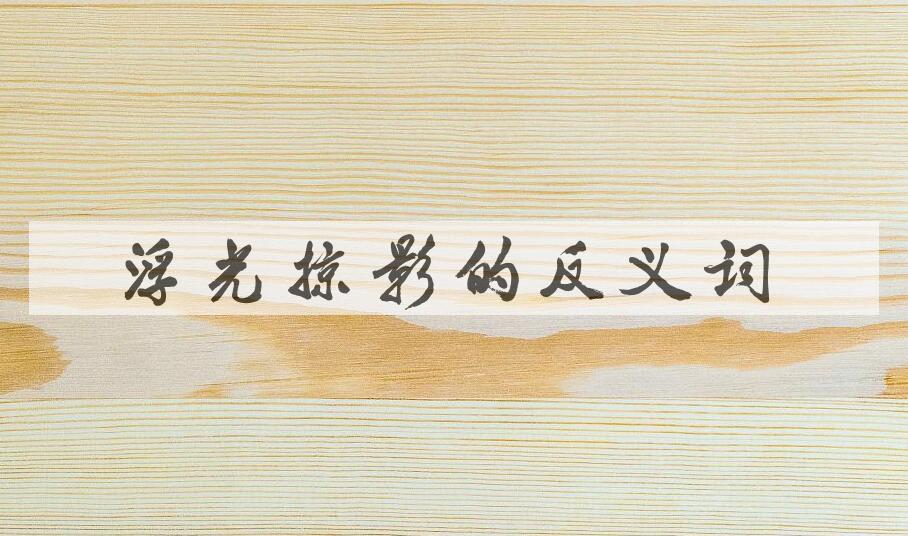 浮光掠影的反义词